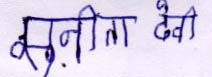 सुनीता देवी